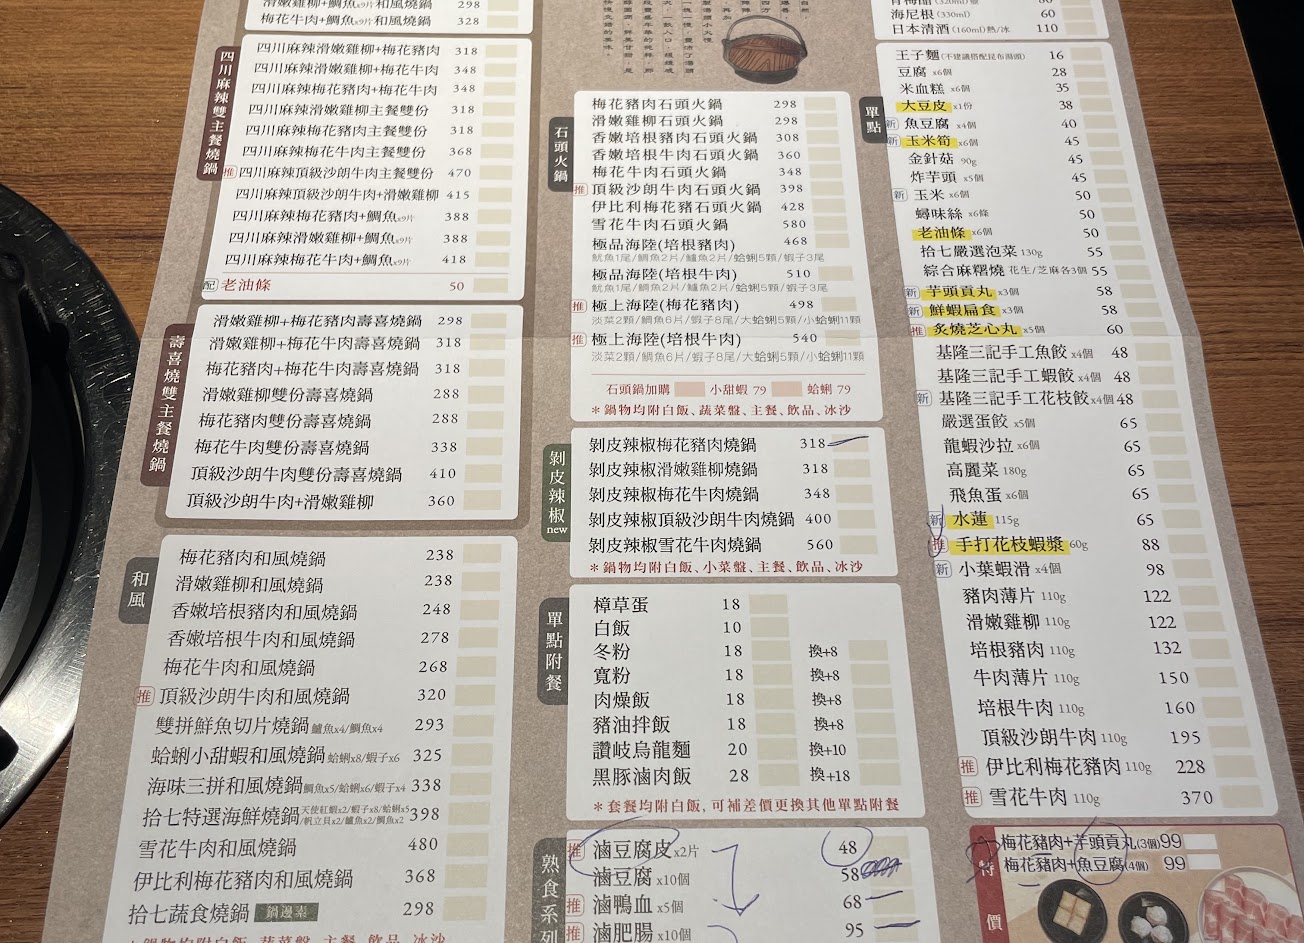 滑嫩雞柳+鯛魚x9片和風燒鍋 298
梅花牛肉+鯛魚x9片和風燒鍋 328
四川麻辣雙主餐燒鍋
四川麻辣滑嫩雞柳+梅花豬肉 318
四川麻辣滑嫩雞柳+梅花牛肉 348
四川麻辣梅花豬肉+梅花牛肉 348
四川麻辣滑嫩雞柳主餐雙份 318
四川麻辣梅花豬肉主餐雙份 318
四川麻辣梅花牛肉主餐雙份 368
推 四川麻辣頂級沙朗牛肉主餐雙份 470
四川麻辣頂級沙朗牛肉+滑嫩雞柳 415
四川麻辣梅花豬肉+鯛魚x9片 388
四川麻辣滑嫩雞柳+鯛魚x9片 388
四川麻辣梅花牛肉+鯛魚x9片 418
配 老油條 50
壽喜燒雙主餐燒鍋
滑嫩雞柳+梅花豬肉壽喜燒鍋 298
滑嫩雞柳+梅花牛肉壽喜燒鍋 318
梅花豬肉+梅花牛肉壽喜燒鍋 318
滑嫩雞柳雙份壽喜燒鍋 288
梅花豬肉雙份壽喜燒鍋 288
梅花牛肉雙份壽喜燒鍋 338
頂級沙朗牛肉雙份壽喜燒鍋 410
頂級沙朗牛肉+滑嫩雞柳 360
和風
梅花豬肉和風燒鍋 238
滑嫩雞柳和風燒鍋 238
香嫩培根豬肉和風燒鍋 248
香嫩培根牛肉和風燒鍋 278
梅花牛肉和風燒鍋 268
推 頂級沙朗牛肉和風燒鍋 320
雙拼鮮魚切片燒鍋 鱸魚x4/鯛魚x4 293
蛤蜊小甜蝦和風燒鍋 蛤蜊x8/蝦子x6 325
海味三拼和風燒鍋 鯛魚x5/蛤蜊x6/蝦子x4 338
拾七特選海鮮燒鍋 天使紅蝦x2/蝦子x8/蛤蜊x5/帆立貝x2/鱸魚x2/鯛魚x2 398
雪花牛肉和風燒鍋 480
伊比利梅花豬肉和風燒鍋 368
拾七蔬食燒鍋 鍋邊素 298
石頭火鍋
梅花豬肉石頭火鍋 298
滑嫩雞柳石頭火鍋 298
香嫩培根豬肉石頭火鍋 308
香嫩培根牛肉石頭火鍋 360
梅花牛肉石頭火鍋 348
推 頂級沙朗牛肉石頭火鍋 398
伊比利梅花豬石頭火鍋 428
雪花牛肉石頭火鍋 580
極品海陸(培根豬肉) 468
魷魚1尾/鯛魚2片/鱸魚2片/蛤蜊5顆/蝦子3尾
極品海陸(培根牛肉) 510
魷魚1尾/鯛魚2片/鱸魚2片/蛤蜊5顆/蝦子3尾
推 極上海陸(梅花豬肉) 498
淡菜2顆/鯛魚6片/蝦子8尾/大蛤蜊5顆/小蛤蜊11顆
推 極上海陸(培根牛肉) 540
淡菜2顆/鯛魚6片/蝦子8尾/大蛤蜊5顆/小蛤蜊11顆
石頭鍋加購 小甜蝦 79 蛤蜊 79
＊鍋物均附白飯、蔬菜盤、主餐、飲品、冰沙
剝皮辣椒 new
剝皮辣椒梅花豬肉燒鍋 318
剝皮辣椒滑嫩雞柳燒鍋 318
剝皮辣椒梅花牛肉燒鍋 348
剝皮辣椒頂級沙朗牛肉燒鍋 400
剝皮辣椒雪花牛肉燒鍋 560
＊鍋物均附白飯、小菜盤、主餐、飲品、冰沙
單點附餐
樟草蛋 18
白飯 10
冬粉 18 換+8
寬粉 18 換+8
肉燥飯 18 換+8
豬油拌飯 18 換+8
讚岐烏龍麵 20 換+10
黑豚滷肉飯 28 換+18
＊套餐均附白飯, 可補差價更換其他單點附餐
熟食系列
推 滷豆腐皮x2片 48
滷豆腐 x10個 58
推 滷鴨血 x5個 68
推 滷肥腸 x10個 95
海尼根(330ml) 60
日本清酒(160ml)熱/冰 110
單點
王子麵(不建議搭配昆布湯頭) 16
豆腐 x6個 28
米血糕 x6個 35
大豆皮 x1份 38
新 魚豆腐 x4個 40
新 玉米筍 x6個 45
金針菇 90g 45
炸芋頭 x5個 45
新 玉米 x6個 50
蟳味絲 x6條 50
老油條 x6個 50
拾七嚴選泡菜 130g 55
綜合麻糬燒 花生/芝麻各3個 55
新 芋頭貢丸 x3個 58
新 鮮蝦扁食 x3個 58
推 炙燒芝心丸 x5個 60
基隆三記手工魚餃 x4個 48
基隆三記手工蝦餃 x4個 48
新 基隆三記手工花枝餃 x4個 48
嚴選蛋餃 x5個 65
龍蝦沙拉 x6個 65
高麗菜 180g 65
飛魚蛋 x6個 65
新 水蓮 115g 65
推 手打花枝蝦漿 60g 88
新 小葉蝦滑 x4個 98
豬肉薄片 110g 122
滑嫩雞柳 110g 122
培根豬肉 110g 132
牛肉薄片 110g 150
培根牛肉 110g 160
頂級沙朗牛肉 110g 195
推 伊比利梅花豬肉 110g 228
推 雪花牛肉 110g 370
特價
梅花豬肉+芋頭貢丸(3個) 99
梅花豬肉+魚豆腐(4個) 99